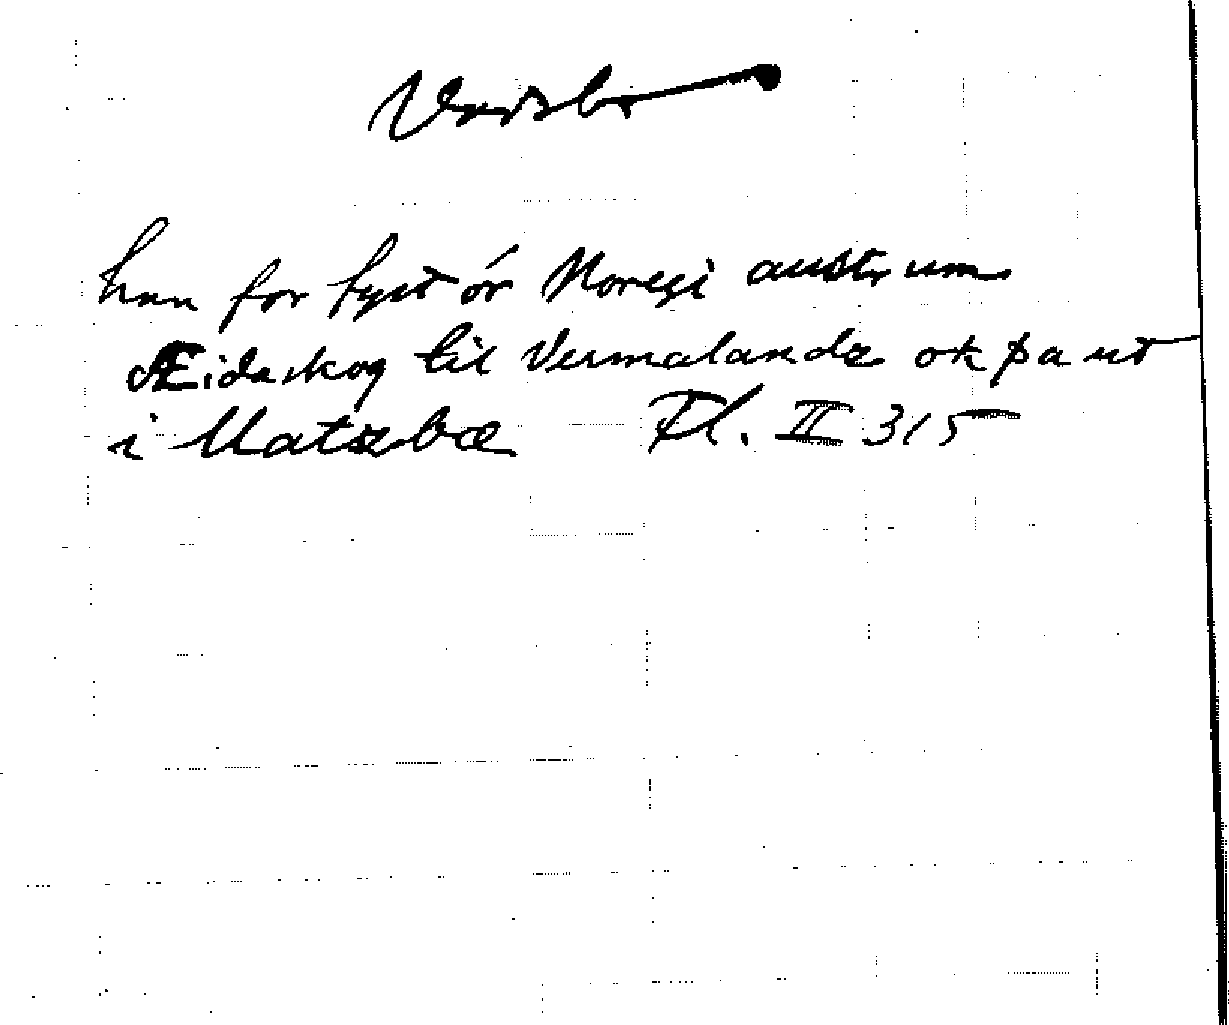 hann for fyst ór Noregi austr um
Æidaskog til Vermalandz ok þa ut
i Vatzbæ Fl. II 315